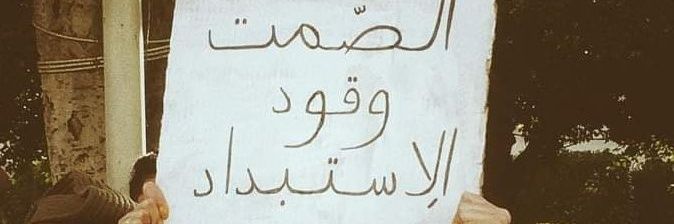 الصّمت
وقود
الإستبداد